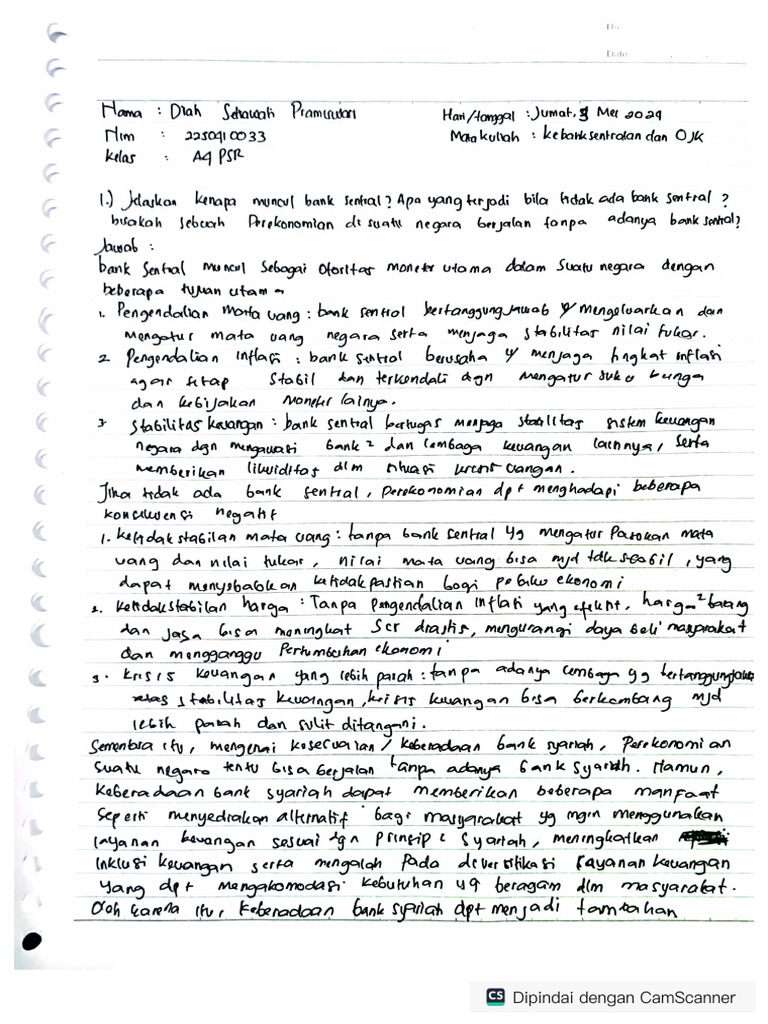 No
Date
Nama : Diah Setiawati Pramiswari
Hari/tanggal : Jumat, 3 Mei 2024
Nim : 2250410033
Mata kuliah : kebanksentralan dan OJK
Kelas : A4 PSR
1.) Jelaskan kenapa muncul bank sentral? Apa yang terjadi bila tidak ada bank sentral?
bisakah sebuah Perekonomian di suatu negara berjalan tanpa adanya bank sentral?
Jawab :
bank Sentral muncul Sebagai otoritas moneter utama dalam Suatu negara dengan
beberapa tujuan utama
1. Pengendalian Mata uang : bank sentral bertanggung jawab u/ Mengeluarkan dan
Mengatur mata uang negara serta menjaga stabilitas nilai tukar.
2. Pengendalian Inflasi : bank sentral berusaha u/ menjaga tingkat inflasi
agar tetap Stabil dan terkendali dgn mengatur suku bunga
dan kebijakan Moneter lainya.
3. Stabilitas keuangan : bank sentral bertugas menjaga stabilitas sistem keuangan
negara dgn mengawasi bank² dan lembaga keuangan lainnya, serta
memberikan likuiditas dlm situasi krisis uangan.
Jika tidak ada bank sentral, perekonomian dpt menghadapi beberapa
konsekuensi negatif
1. Ketidakstabilan mata uang : tanpa bank sentral yg mengatur Pasokan mata
uang dan nilai tukar, nilai mata uang bisa mjd tdk stabil, yang
dapat menyebabkan ketidakpastian bagi pelaku ekonomi
2. Ketidakstabilan harga : Tanpa pengendalian inflasi yang efektif, harga² barang
dan jasa bisa meningkat Scr drastis, mengurangi daya beli masyarakat
dan mengganggu Pertumbuhan ekonomi
3. Krisis keuangan yang lebih parah : tanpa adanya lembaga yg bertanggungjawab
atas stabilitas keuangan, krisis keuangan bisa berkembang mjd
lebih parah dan sulit ditangani.
Sementara itu, mengenai kesesuaian / keberadaan bank syariah, Perekonomian
Suatu negara tentu bisa berjalan tanpa adanya bank Syariah. Namun,
keberadaan bank syariah dapat memberikan beberapa manfaat
Seperti menyediakan alternatif bagi masyarakat yg ingin menggunakan
layanan keuangan sesuai dgn prinsip² Syariah, meningkatkan
Inklusi keuangan serta mengalah pada deversifikasi layanan keuangan
Yang dpt mengakomodasi kebutuhan yg beragam dlm masyarakat.
Oleh karena itu, Keberadaan bank syariah dpt menjadi tambahan
CS Dipindai dengan CamScanner